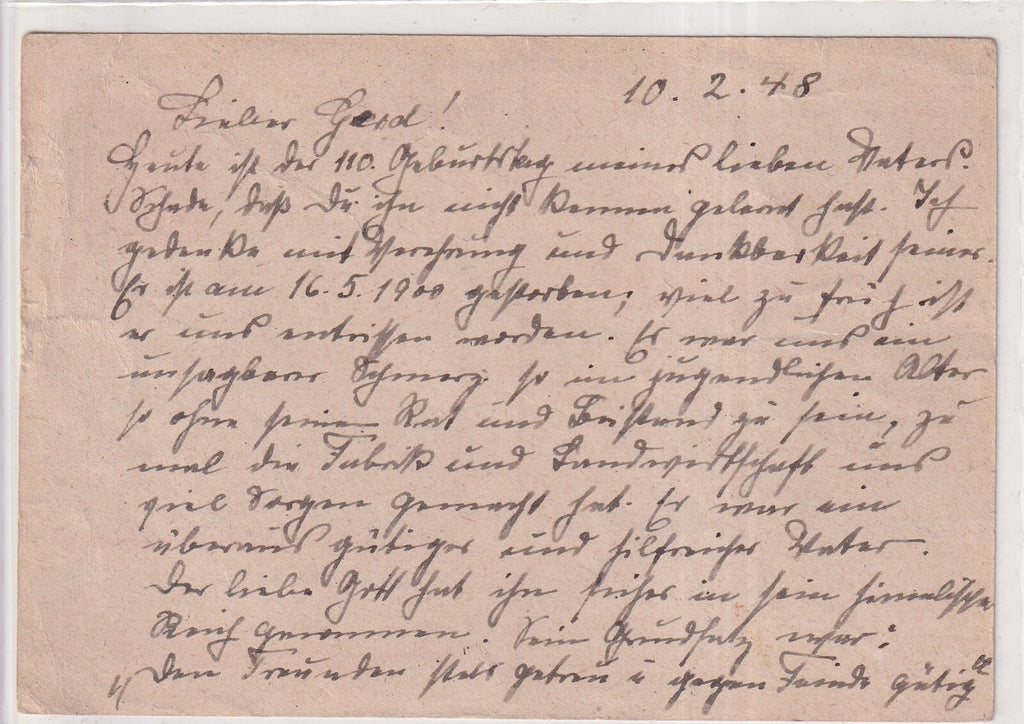 10. 2. 48
Lieber Gerd!
Heute ist der 110. Geburtstag meines lieben Vaters.
Schade, daß Du ihn nicht kennen gelernt hast. Ich
gedenke mit Verehrung und Dankbarkeit seiner.
Er ist am 16. 5. 1900 gestorben; viel zu früh ist
er uns entrissen worden. Es war uns ein
unsagbarer Schmerz so im jugendlichen Alter
so ohne seinen Rat und Beistand zu sein, zu
mal die Fabrik und Landwirtschaft uns
viel Sorgen gemacht hat. Er war ein
überaus gütiger und hilfreicher Vater.
Der liebe Gott hat ihn sicher in sein himmlisches
Reich genommen. Sein Grundsatz war:
"Den Freunden stets getreu u gegen Feinde gütig"